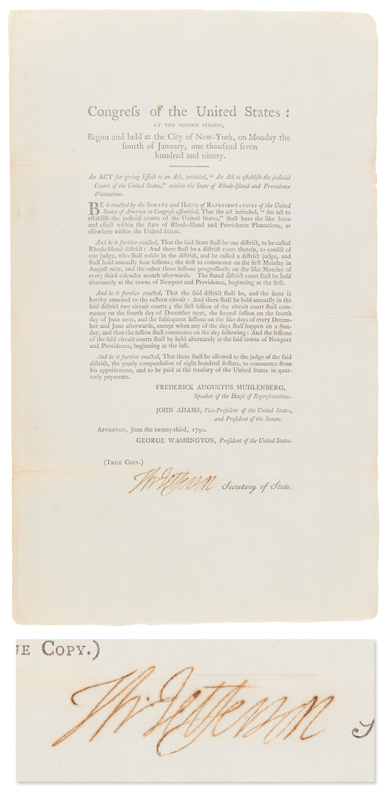 Congreſs of the United States:
AT THE SECOND SESSION,
Begun and held at the City of New-York, on Monday the
fourth of January, one thouſand ſeven
hundred and ninety.
An ACT for giving Effect to an Act, intituled, “ An Act to eſtabliſh the judicial
Courts of the United States,” within the State of Rhode-Iſland and Providence
Plantations.
BE it enacted by the SENATE and HOUSE of REPRESENTATIVES of the United
States of America in Congreſs aſſembled, That the act intituled, “ An act to
eſtabliſh the judicial courts of the United States,” ſhall have the like force
and effect within the State of Rhode-Iſland and Providence Plantations, as
elſewhere within the United States.
And be it further enacted, That the ſaid State ſhall be one diſtrict, to be called
Rhode-Iſland diſtrict: And there ſhall be a diſtrict court therein, to conſiſt of
one judge, who ſhall reſide in the diſtrict, and be called a diſtrict judge, and
ſhall hold annually four ſeſſions; the firſt to commence on the firſt Monday in
Auguſt next, and the other three ſeſſions progreſſively on the like Monday of
every third calendar month afterwards. The ſtated diſtrict court ſhall be held
alternately at the towns of Newport and Providence, beginning at the firſt.
And be it further enacted, That the ſaid diſtrict ſhall be, and the ſame is
hereby annexed to the eaſtern circuit: And there ſhall be held annually in the
ſaid diſtrict two circuit courts; the firſt ſeſſion of the circuit court ſhall com-
mence on the fourth day of December next, the ſecond ſeſſion on the fourth
day of June next, and the ſubſequent ſeſſions on the like days of every Decem-
ber and June afterwards, except when any of the days ſhall happen on a Sun-
day, and then the ſeſſion ſhall commence on the day following: And the ſeſſions
of the ſaid circuit courts ſhall be held alternately at the ſaid towns of Newport
and Providence, beginning at the laſt.
And be it further enacted, That there ſhall be allowed to the judge of the ſaid
diſtrict, the yearly compenſation of eight hundred dollars, to commence from
his appointment, and to be paid at the treaſury of the United States in quar-
terly payments.
FREDERICK AUGUSTUS MUHLENBERG,
Speaker of the Houſe of Repreſentatives.
JOHN ADAMS, Vice-Preſident of the United States,
and Preſident of the Senate.
APPROVED, June the twenty-third, 1790.
GEORGE WASHINGTON, Preſident of the United States.
(TRUE COPY.)
Th: Jefferson Secretary of State.
UE COPY.)
Th: Jefferson S